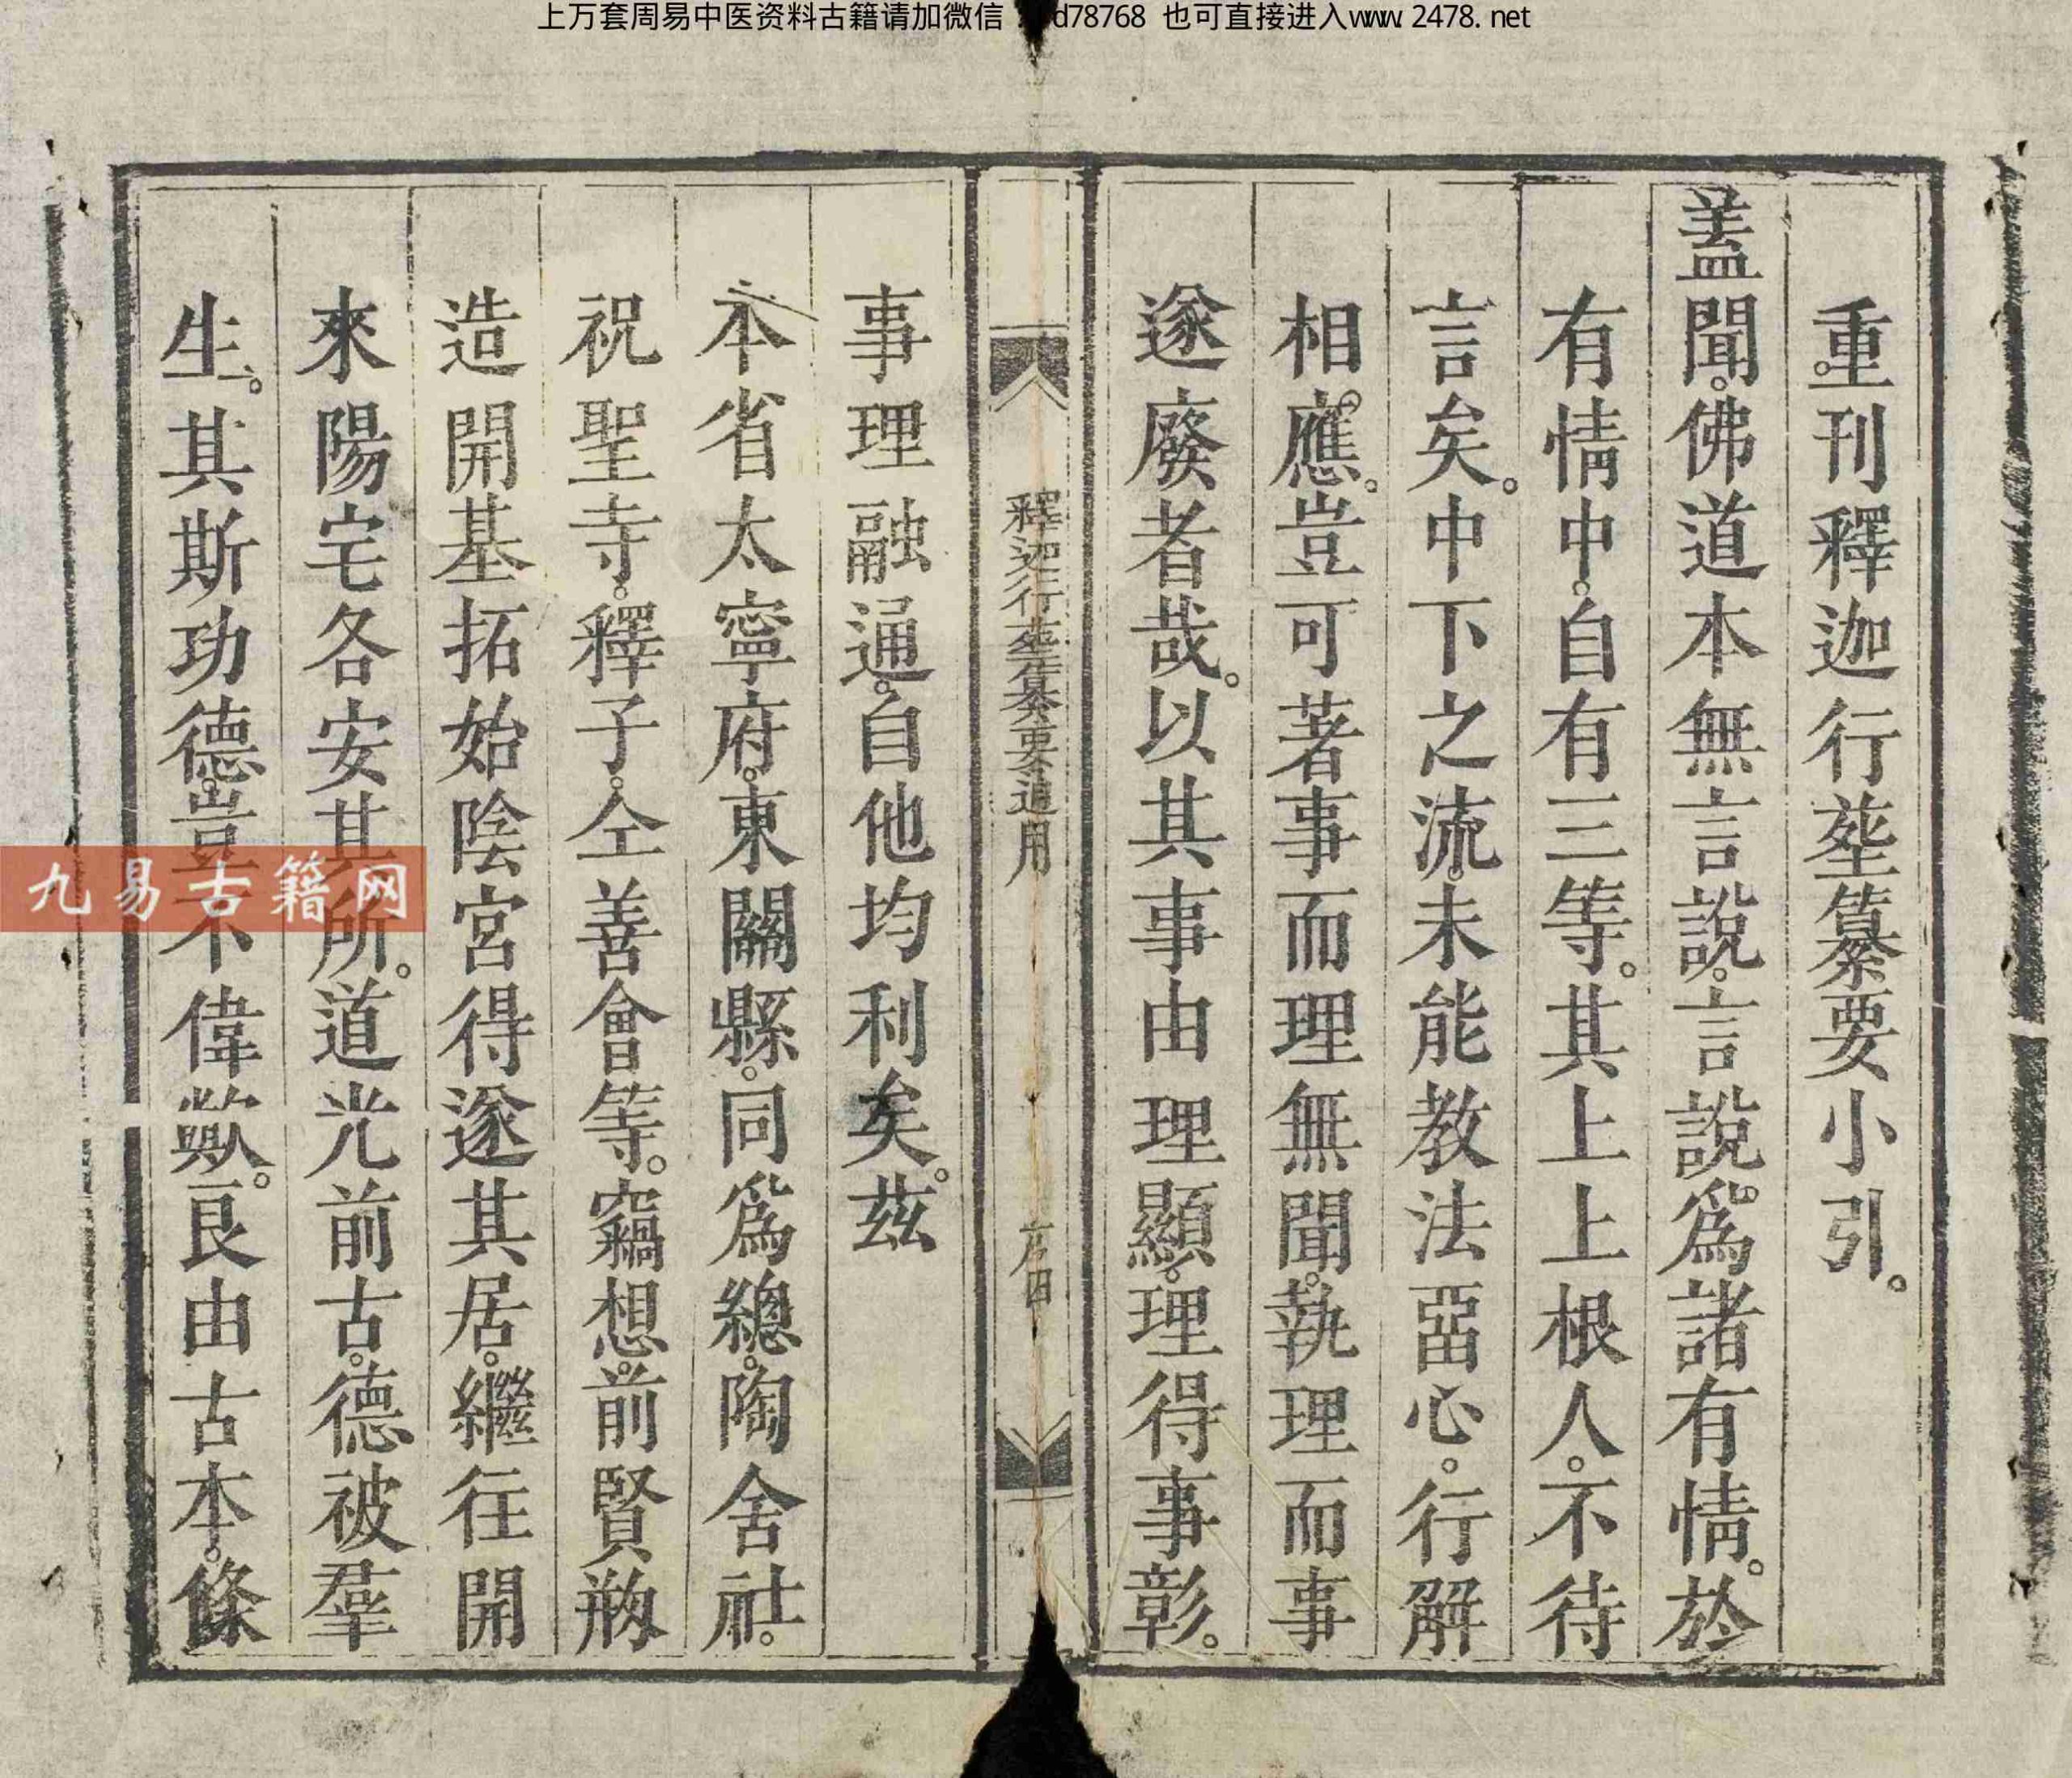 上万套周易中医资料古籍请加微信 d78768 也可直接进入www.2478.net
重刊釋迦行塟纂要小引。
蓋聞。佛道本無言說。言說。爲諸有情。於
有情中。自有三等。其上上根人。不待
言矣。中下之流。未能教法𠰥心。行解
相應。豈可著事而理無聞。執理而事
遂廢者哉。以其事由理顯。理得事彰。
釋迦行塟纂要通用
序四
事理融通。自他均利矣。茲
本省太寧府。東關縣。同爲總。陶舍社。
祝聖寺。釋子。仝善會等。竊想。前賢剏
造開基拓始陰宮得遂其居。繼往開
來陽宅各安其所。道光前古。德被羣
生。其斯功德。豈不偉歟。良由古本。條
九易古籍网